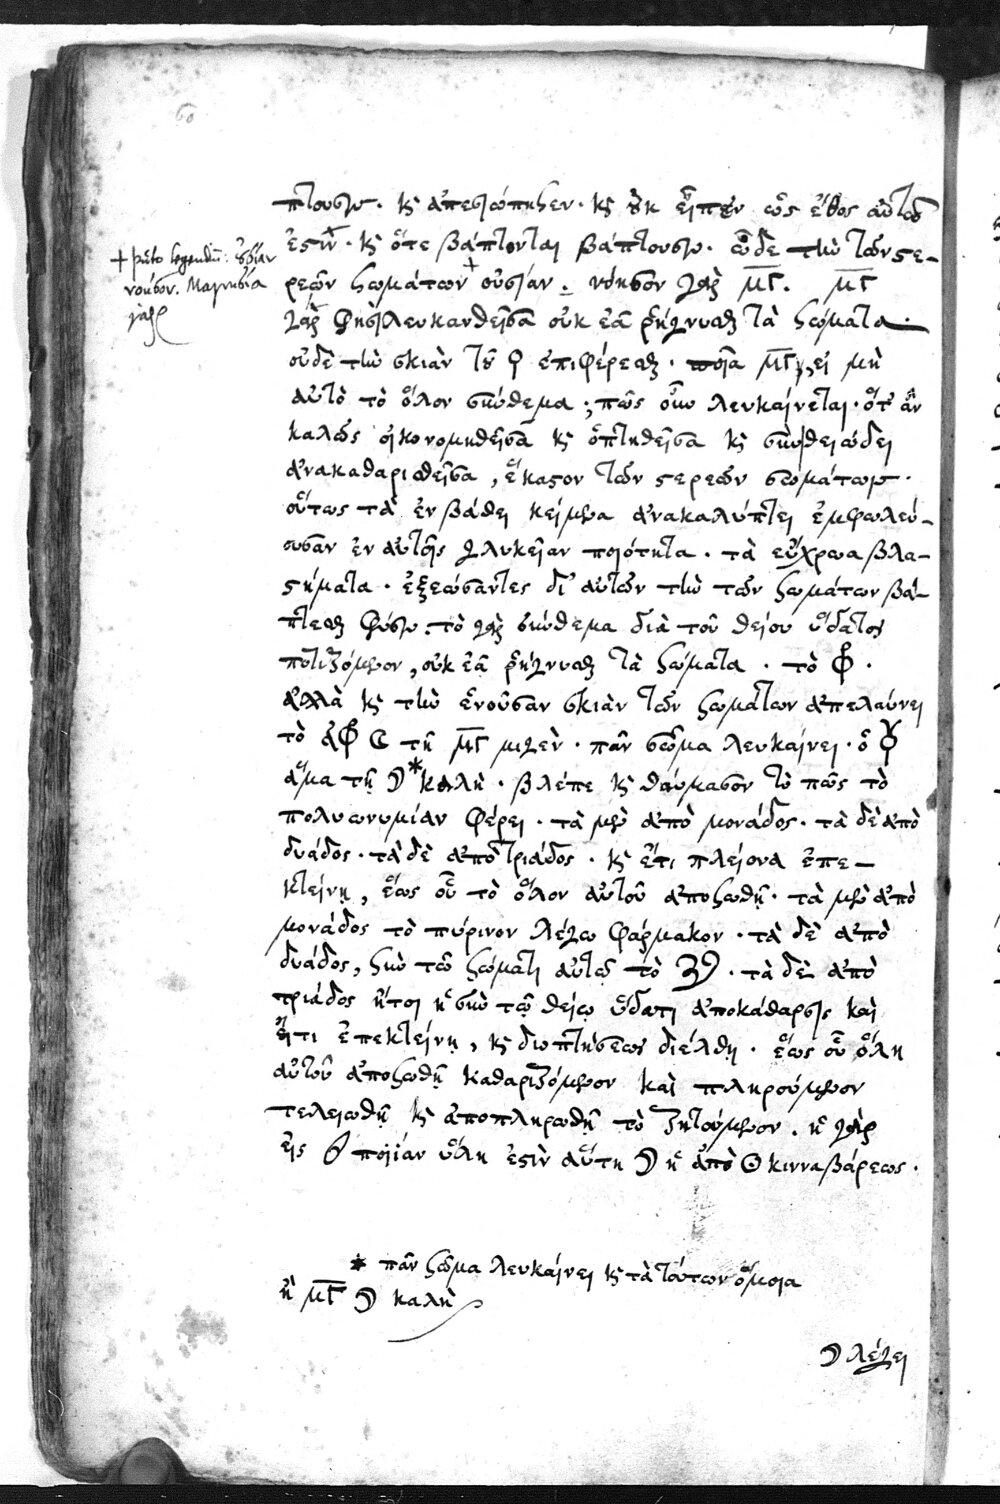 πτουσιν. κ ἀπεσιώπησεν. κ οὐκ εἶπεν ὡς ἔθος αὐτῷ
ἐστίν. κ ὅτε βάπτονται βάπτουσιν. ὧδε τὴν τῶν στε-
ρεῶν σωμάτων + οὐσίαν. νόησον γὰρ μΓ. μΓ
γάρ φησι λευκανθεῖσα οὐκ ἐᾶ ῥήγνυσθαι τὰ σώματα.
οὐδὲ τὴν σκιὰν τοῦ ♀ ἐπιφέρεσθαι. ποία μΓ, εἰ μὴ
αὐτὸ τὸ ὅλον σύνθεμα; πῶς οὖν λευκαίνεται. ὅτ' ἂν
καλῶς οἰκονομηθεῖσα κ ὀπτηθεῖσα κ
ἀνακαθαρισθεῖσα, ἕκαστον τῶν στερεῶν σωμάτων.
οὕτως τὰ ἐν βάθει κείμενα ἀνακαλύπτει ἐμφωλεύ-
ουσαν ἐν αὐτοῖς γλυκεῖαν ποιότητα. τὰ εὔχροα βλα-
στήματα. ἐξεώσαντες δι' αὐτῶν τὴν τῶν σωμάτων βά-
πτεσθαι φύσιν. τὸ γὰρ σύνθεμα διὰ τοῦ θείου ὕδατος
ποτιζόμενον, οὐκ ἐᾶ ῥήγνυσθαι τὰ σώματα. τὸ
ἀλλὰ κ τὴν ἐνοῦσαν σκιὰν τῶν σωμάτων ἀπελαύνει
τὸ τῇ μΓ μιγὲν. πᾶν σῶμα λευκαίνει. ὁ
ἅμα τῇ ☽ * καλῇ. βλέπε κ θαύμασον τὸ πῶς τὸ
πολυωνυμίαν φέρει. τὰ μὲν ἀπὸ μονάδος. τὰ δὲ ἀπὸ
δυάδος. τὰ δὲ ἀπὸ τριάδος. κ ἔτι πλείονα ἐπε-
κτείνῃ, ἕως οὗ τὸ ὅλον αὐτοῦ ἀποσωθῇ. τὰ μὲν ἀπὸ
μονάδος τὸ πύρινον λέγω φάρμακον. τὰ δὲ ἀπὸ
δυάδος, σὺν τῷ σώματι αὐτῷ τὸ. τὰ δὲ ἀπὸ
τριάδος ἤτοι ἡ σὺν τῷ θείῳ ὕδατι ἀποκάθαρσις καὶ
ἔτι ἐπεκτείνῃ, κ διοπτήσεως διέλθῃ. ἕως οὗ ὅλη
αὐτοῦ ἀποσωθῇ καθαριζόμενον καὶ πληρούμενον
τελειωθῇ κ ἀποπληρωθῇ τὸ ζητούμενον. ἡ γὰρ
εἰς ποιίαν ὕλη ἐστὶν αὕτη ☽ ἡ ἀπὸ ☉ κινναβάρεως.
+ puto legendum: οὐσίαν
νόησον. Μαγνησία
γάρ
* πᾶν σῶμα λευκαίνει κ τὰ τούτων ὅμοια
ἡ μΓ ☽ καλή
☽ λέγει